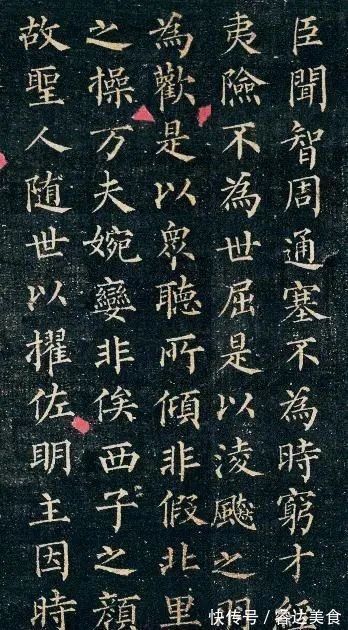 臣聞智周通塞不為時窮才經
夷險不為世屈是以淩飈之羽
為歡是以眾聽所傾非假北里
之操万夫婉孌非俟西子之顏
故聖人随世以擢佐明主因時
快传号/达美食